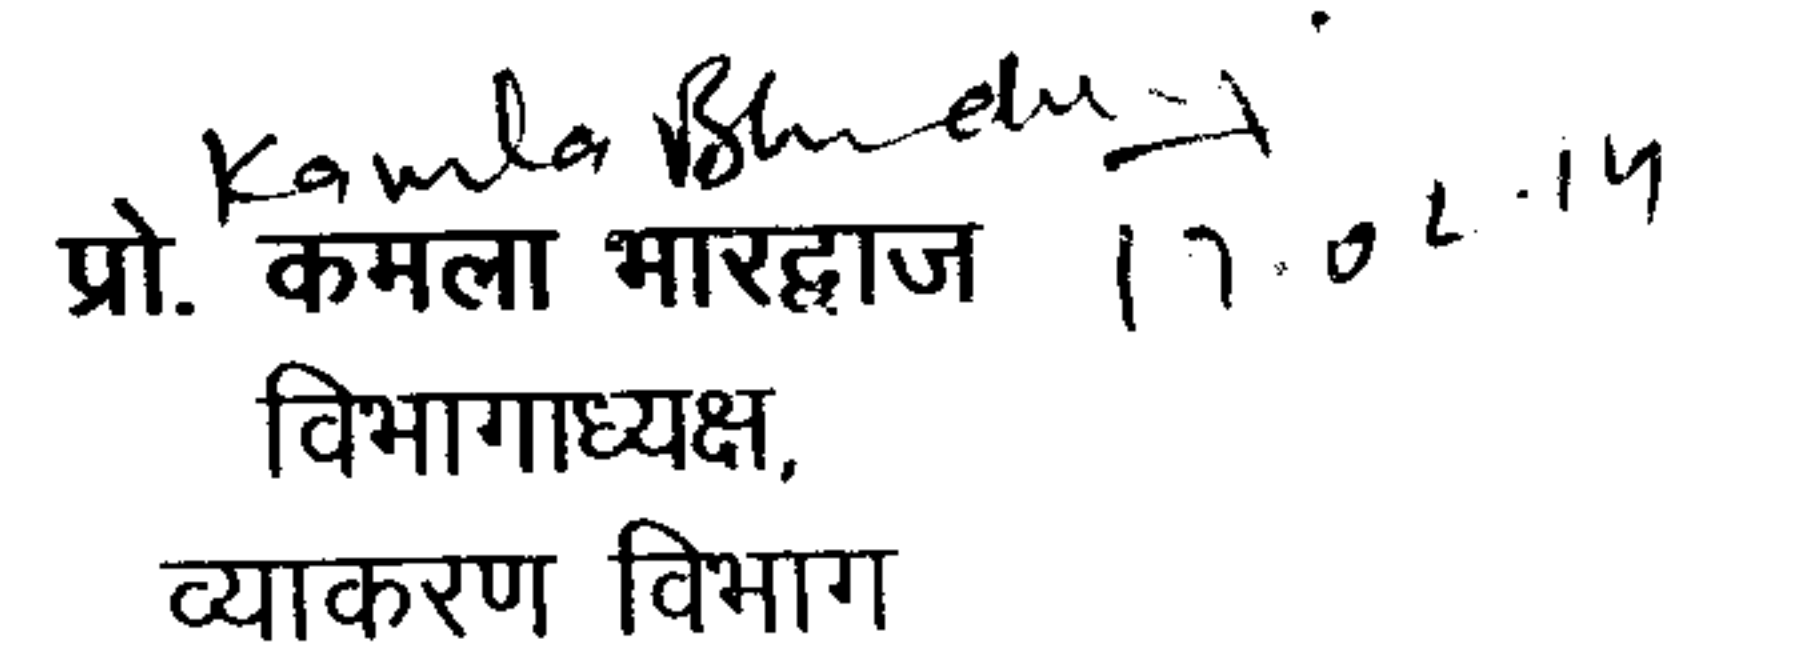 Kamla Bhardwaj
17.02.14
प्रो. कमला भारद्वाज
विभागाध्यक्ष,
व्याकरण विभाग